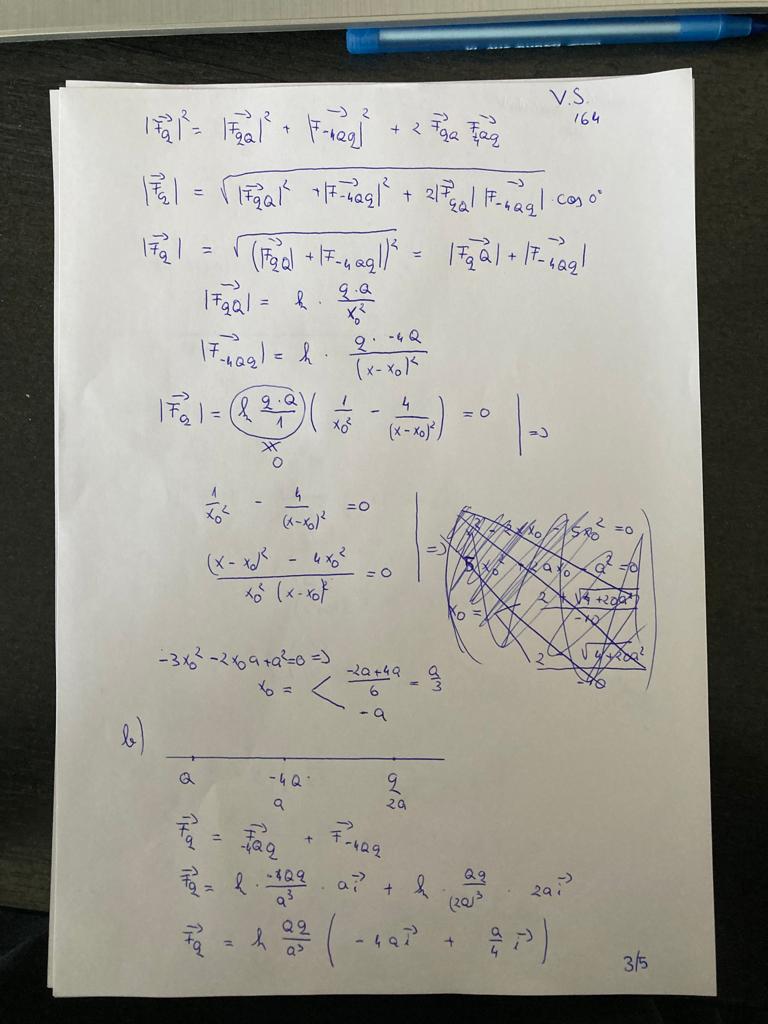 V.S.
164
|F⃗q|² = |F⃗qQ|² + |F⃗-4Qq|² + 2 F⃗qQ F⃗4Qq
|F⃗q| = √(|F⃗qQ|² + |F⃗-4Qq|² + 2|F⃗qQ| |F⃗-4Qq|) · cos 0°
|F⃗q| = √((|F⃗qQ| + |F⃗-4Qq|)²) = |F⃗qQ| + |F⃗-4Qq|
|F⃗qQ| = k · q·Q / x₀²
|F⃗-4Qq| = k · q · -4Q / (x-x₀)²
|F⃗q| = (k q·Q / 1) ( 1/x₀² - 4/(x-x₀)² ) = 0 | =>
0
1/x₀² - 4/(x-x₀)² = 0
((x-x₀)² - 4x₀²) / (x₀² (x-x₀)²) = 0 | =>
-3x₀² - 2x₀a + a² = 0 =>
x₀ = < (-2a+4a)/6 = a/3
-a
b)
Q -4Q q
a 2a
F⃗q = F⃗-4Qq + F⃗-4Qq
F⃗q = k · -4Qq/a³ · a i⃗ + k · Qq/(2a)³ · 2a i⃗
F⃗q = k Qq/a³ ( -4a i⃗ + a/4 i⃗ )
3/5